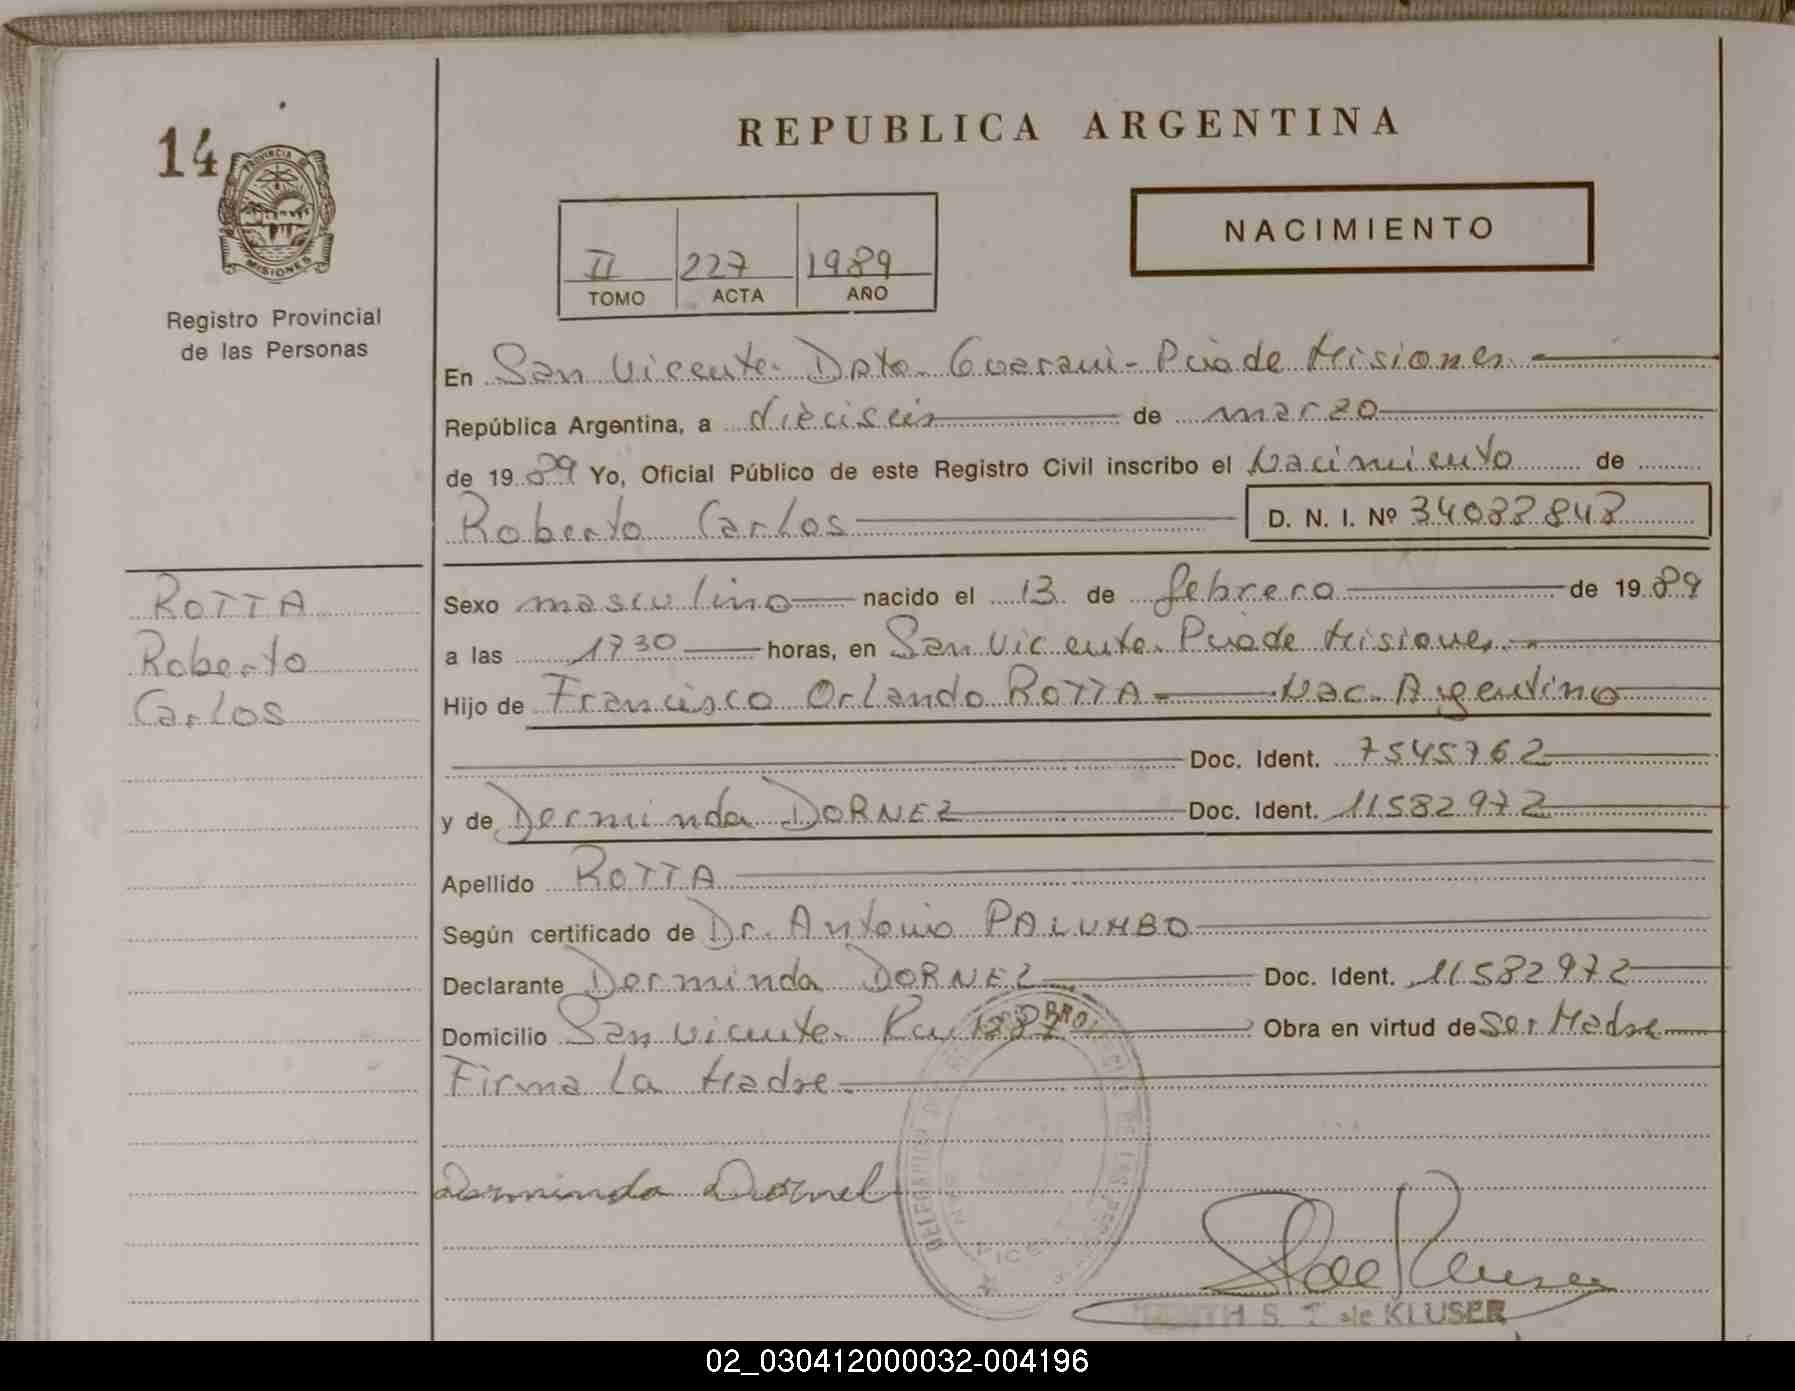 14
PROVINCIA DE
MISIONES
Registro Provincial
de las Personas
REPUBLICA ARGENTINA
II 227 1989
TOMO ACTA AÑO
NACIMIENTO
En San Vicente. Dpto. Guarani - Pcia de Misiones.
República Argentina, a dieciseis de marzo
de 1989 Yo, Oficial Público de este Registro Civil inscribo el Nacimiento de
Roberto Carlos D. N. I. Nº 34088848
ROTTA
Roberto
Carlos
Sexo masculino nacido el 13 de febrero de 1989
a las 1730 horas, en San Vicente. Pcia de Misiones.
Hijo de Francisco Orlando ROTTA Nac. Argentino
Doc. Ident. 7545762
y de Derminda DORNEL Doc. Ident. 11582972
Apellido ROTTA
Según certificado de Dr. Antonio PALUMBO
Declarante Derminda DORNEL Doc. Ident. 11582972
Domicilio San Vicente. Km 1287 Obra en virtud de Ser Madre
Firma La Madre.
Derminda Dornel
S. T de KLUSER
02_030412000032-004196